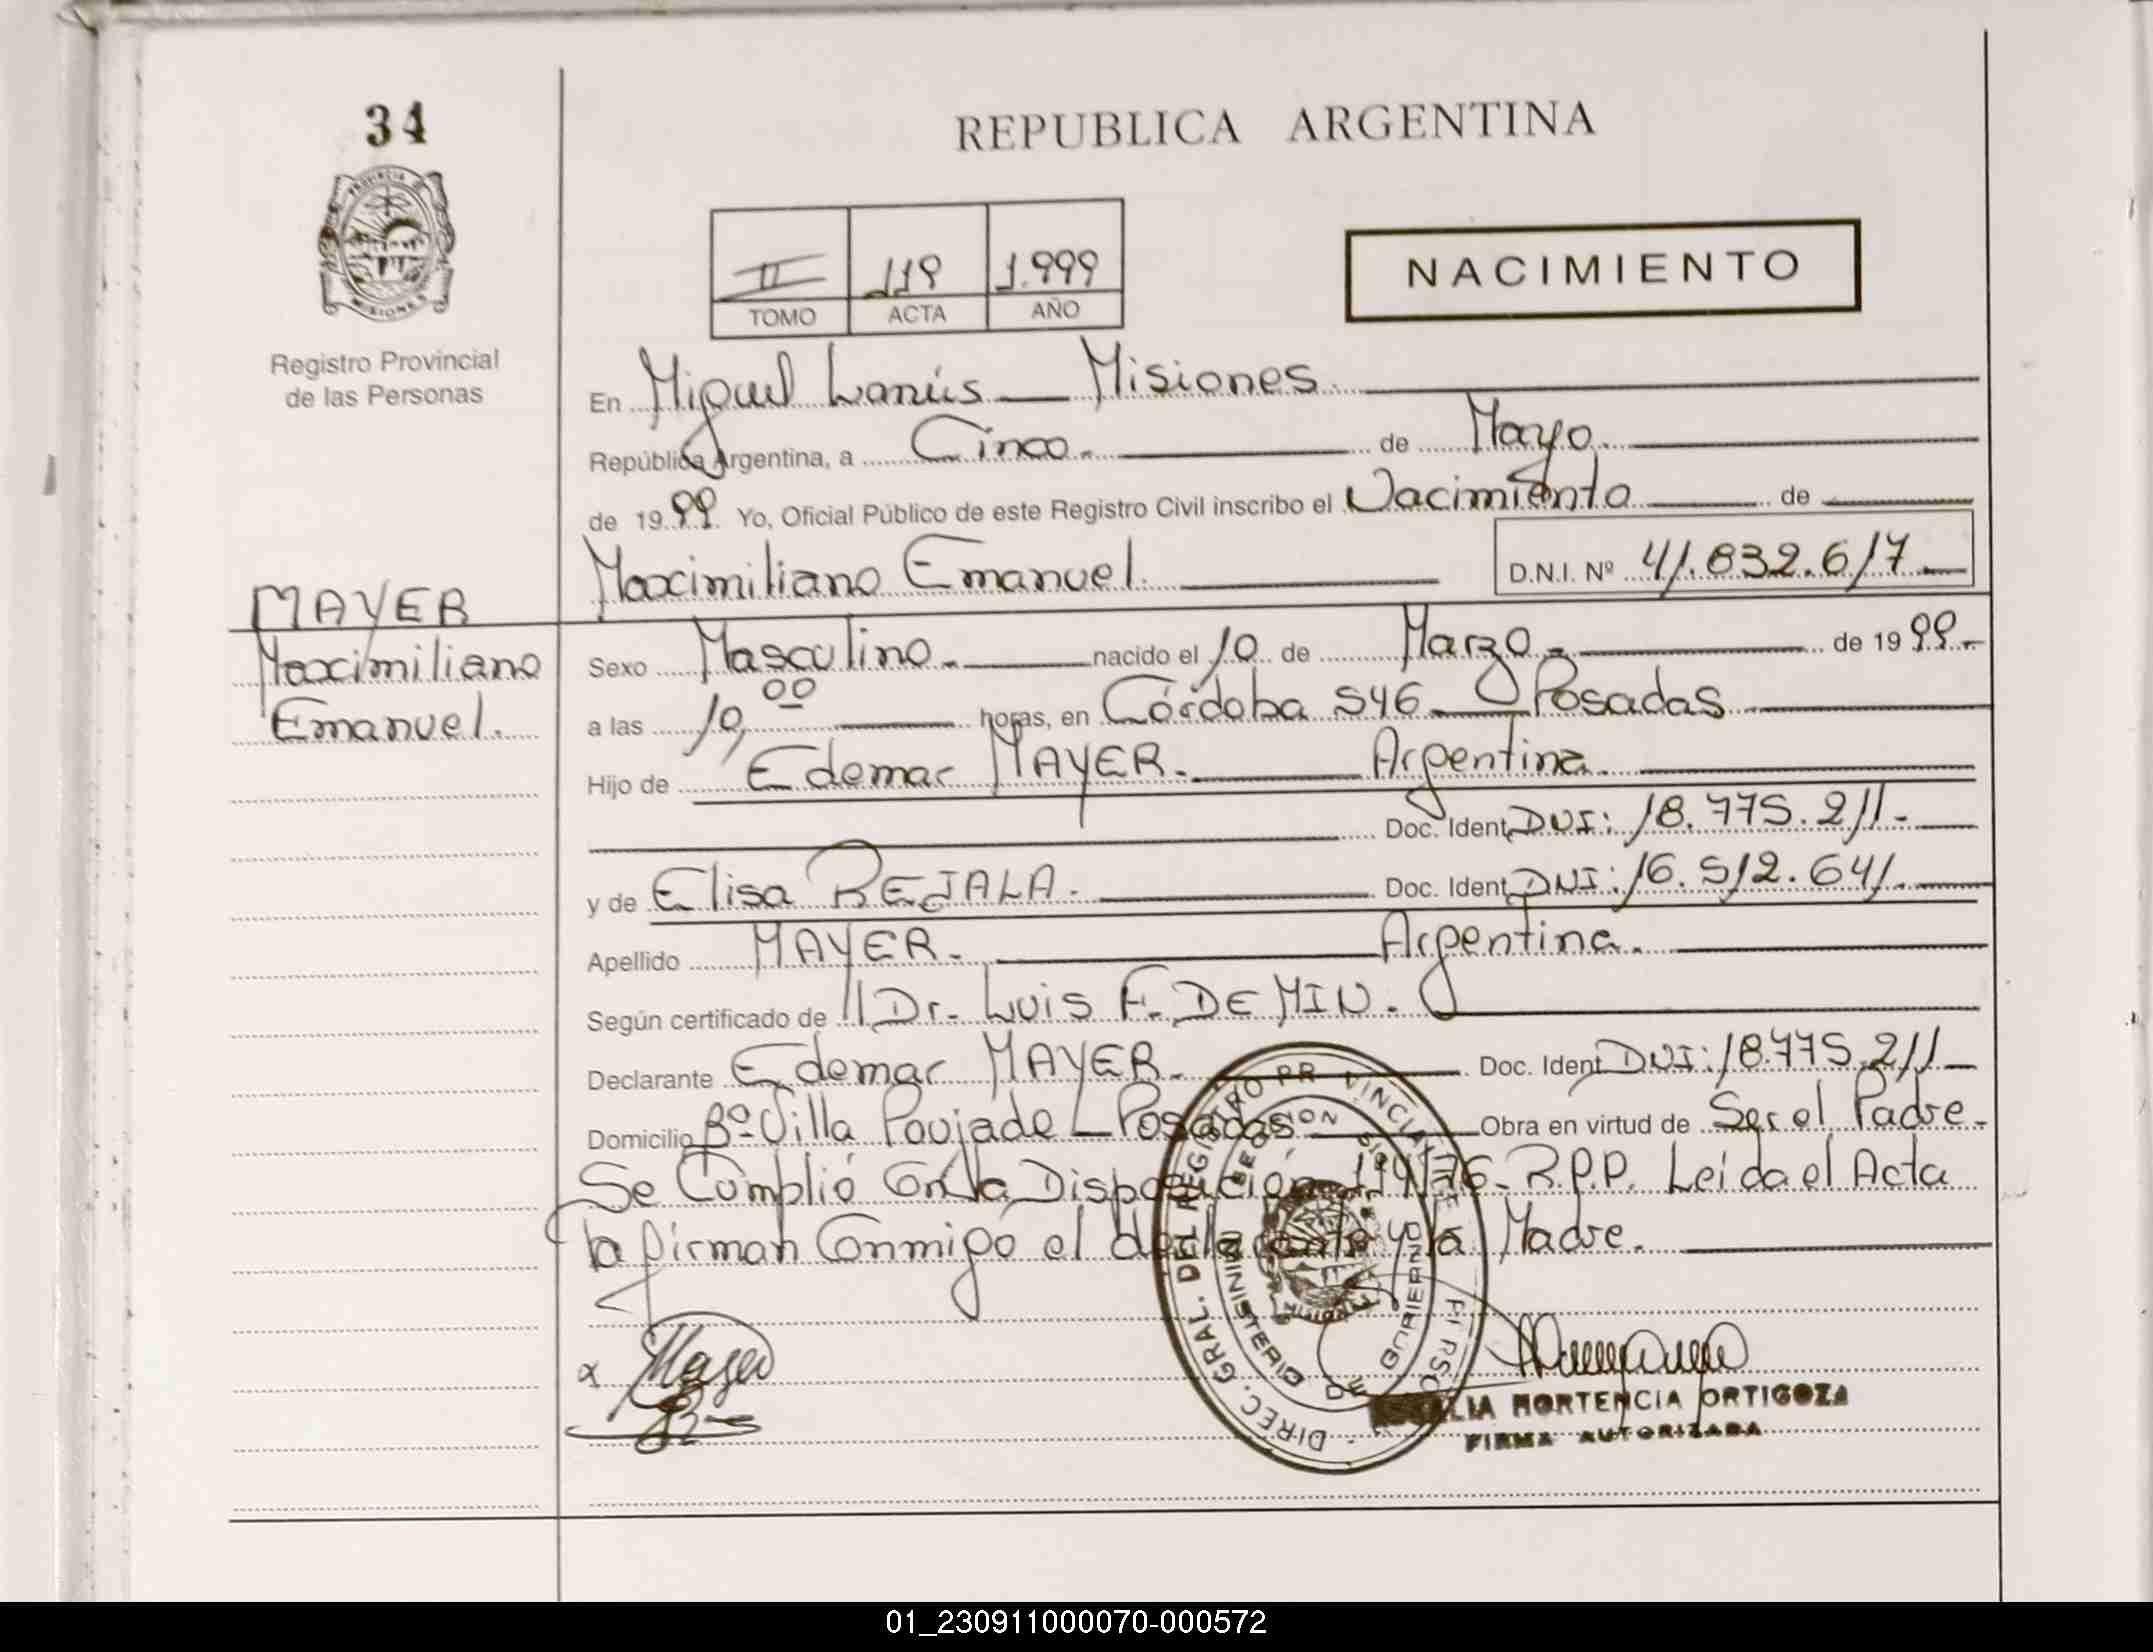 34
REPUBLICA ARGENTINA
PROVINCIA DE
MISIONES
II 119 1.999
TOMO ACTA AÑO
NACIMIENTO
Registro Provincial
de las Personas
En Miguel Lanús — Misiones.
República Argentina, a Cinco. de Mayo.
de 1999 Yo, Oficial Público de este Registro Civil inscribo el Nacimiento de
Maximiliano Emanuel. D.N.I. Nº 41.832.617
MAYER
Maximiliano
Emanuel.
Sexo Masculino. nacido el 10 de Marzo de 1999.-
a las 10,00 horas, en Córdoba 546 — Posadas
Hijo de Edemar MAYER. Argentina.
Doc. Ident. DNI: 18.775.211.-
y de Elisa REJALA. Doc. Ident. DNI: 16.512.641.
Apellido MAYER. Argentina.
Según certificado de Dr. Luis F. DE MIN.
Declarante Edemar MAYER. Doc. Ident. DNI: 18.775.211
Domicilio Bº Villa Poujade — Posadas Obra en virtud de Ser el Padre.
Se Cumplió Con la Disposición 194/76 - R.P.P. Leida el Acta
la firman Conmigo el declarante y la Madre.
DIREC. GRAL. DEL REGISTRO PROVINCIAL DE
MINISTERIO DE GOBIERNO
x Mayer
HORTENCIA ORTIGOZA
FIRMA AUTORIZADA
01_230911000070-000572